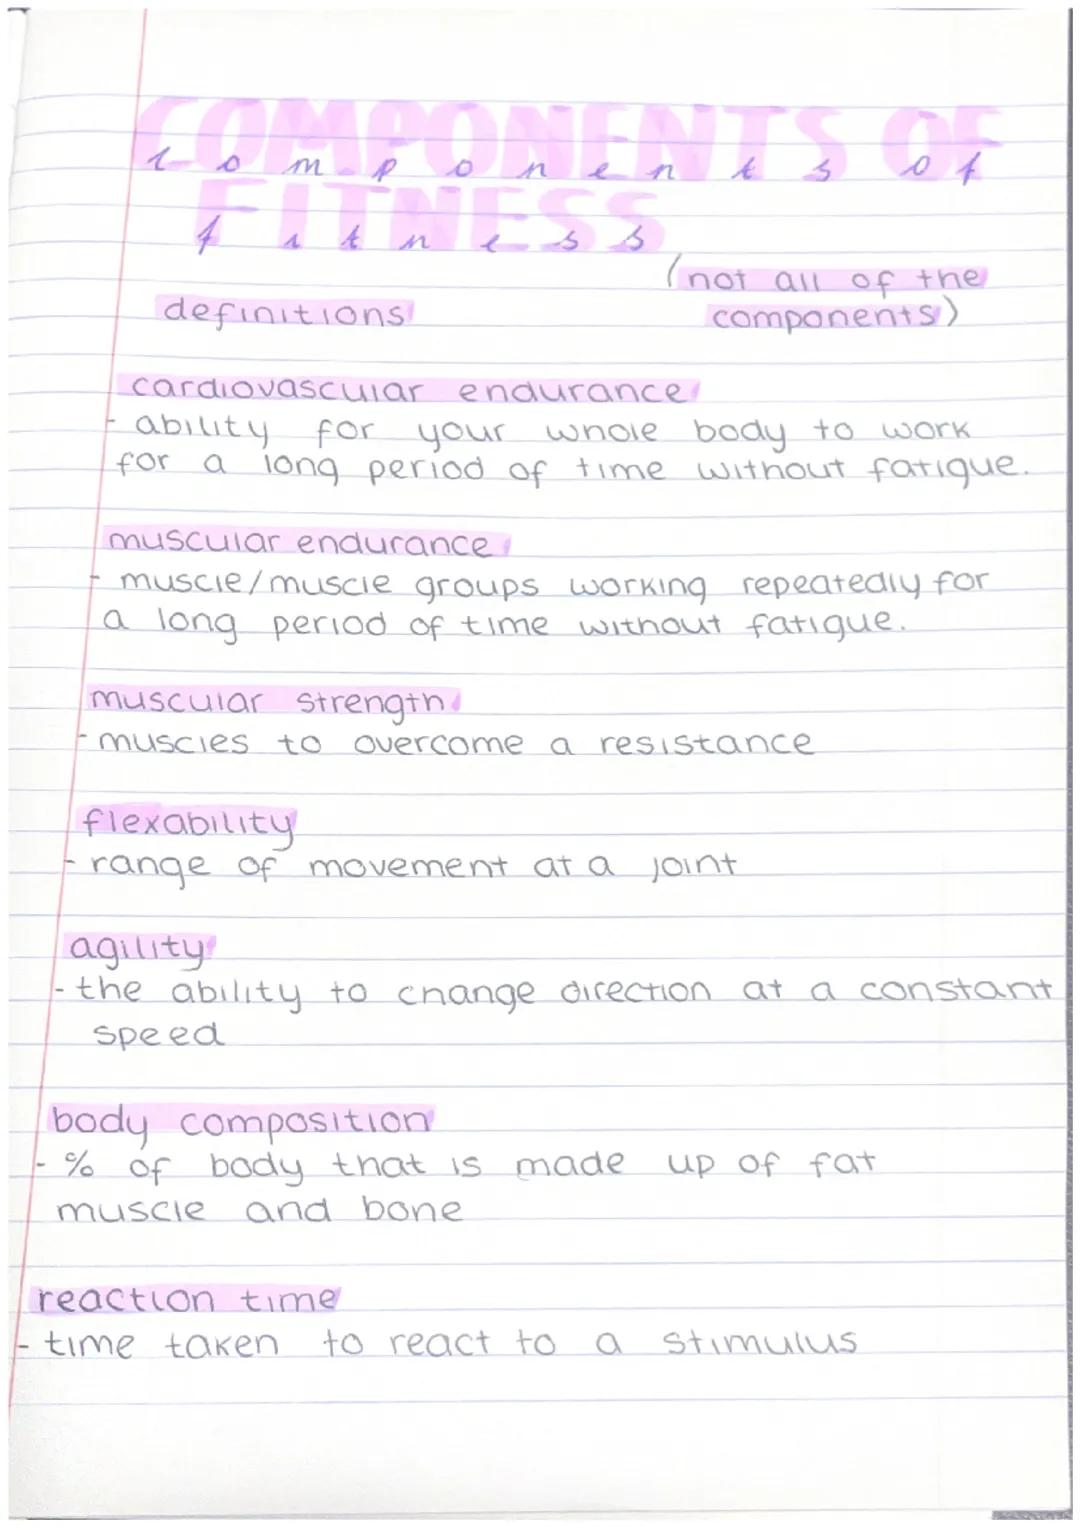 COMPONENTS OF
components of
FITNESS
fitness
(not all of the
definitions components)
cardiovascular endurance
- ability for your whole body to work
for a long period of time without fatigue.
muscular endurance
- muscle/muscle groups working repeatedly for
a long period of time without fatigue.
muscular strength
- muscles to overcome a resistance
flexability
- range of movement at a joint
agility
- the ability to change direction at a constant
speed
body composition
- % of body that is made up of fat
muscle and bone
reaction time
- time taken to react to a stimulus